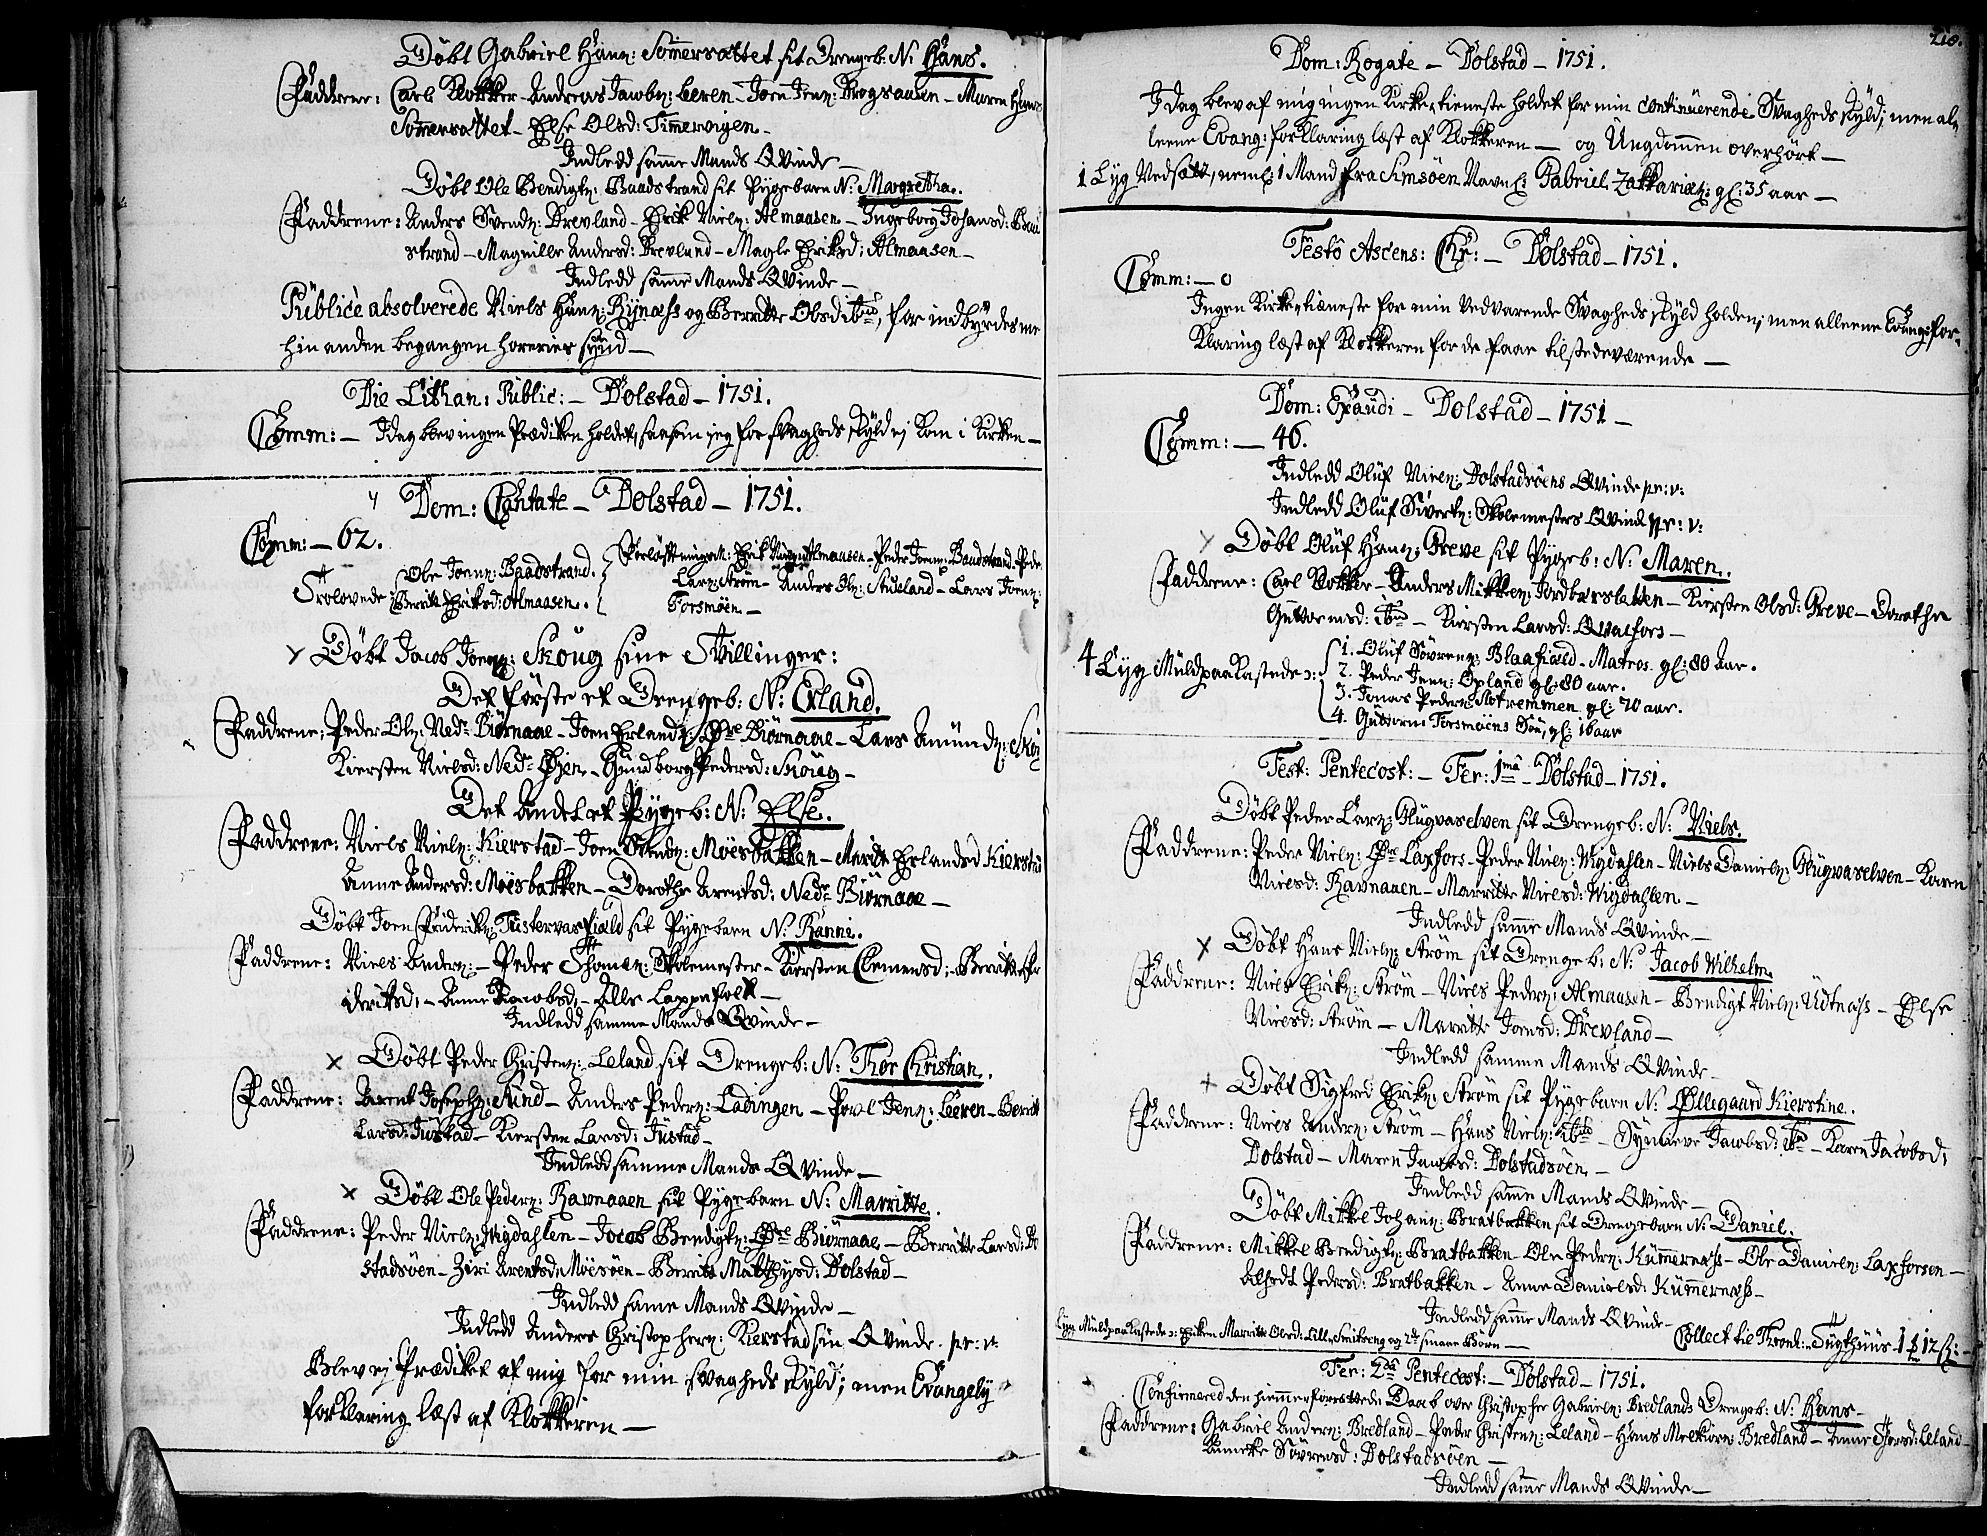 Döbt Gabriel Hanẞ: Sömmersættet sit Drengeb: N: Hans.
Faddrene: Carl Klokker - Andreas Jacobẞ: Leeren - Joen Jenẞ: - Maren
Sömmersættet - Else Olsd: Timmervigen -
Indledd samme Mands Qvinde -
Döbt Ole Bendigtẞ: Baadstrand sit Pygebarn N: Margretha.
Faddrene: Anders Svendẞ: Drevland - Erik Nielẞ: Almaasen - Ingeborg Johansd:
strand - Magnille Andersd: Drevland - Magle Eriksd: Almaasen -
Indledd samme Mands Qvinde -
Publicè absolverede Niels Hanẞ: Rynæss og Berritte Olsd: ibid, for indbyrdes me
hinanden begangen horeries synd -
Die Lithan: Public: - Dolstad - 1751.
Comm: - I dag blev ingen Prædiken holdet, saasom jeg for svagheds skyld ej kom i Kirken -
Dom: Cantate - Dolstad - 1751.
Comm: - 62.
Trolovede: Ole Joenẞ: Baadstrand. Berritte Eriksd: Almaasen.
Forlöftningsm: Erik Almaasen - Peder Joenẞ: Baadstrand - Peder
Larẞ: Ström - Anders Olẞ: - Lars Joenẞ:
Forsmöen -
Döbt Jacob Joenẞ: Skoug sine Tvillinger:
Det förste et Drengeb: N: Erland.
Faddrene: Peder Olẞ: Nedr Biörnaae - Joen Erlandẞ: Öfre Biörnaae - Lars Amundẞ:
Kiersten Nielsd: Nedr - Gundborg Pedersd: Skoug -
Det Andet et Pygeb: N: Else.
Faddrene: Niels Nielẞ: Kierstad - Joen Svendẞ: Möesbakken - Maritte Erlandsd Kierstad
Anne Andersd: Möesbakken - Dorothe Arentsd: Nedr Biörnaae -
Döbt Joen Friderikẞ: Tustervasfiæld sit Pygebarn N: Ranni.
Faddrene: Niels Anderẞ: - Peder Thomæẞ: Skolemester - Kiersten Clemensd: - Berritte Fr
ideriksd: - Anne Jacobsd: - Alle Lappefolk -
Indledd samme Mands Qvinde -
Döbt Peder Christenẞ: Leland sit Drengeb: N: Thor Christian.
Faddrene: Arent Josephẞ: Sund - Anders Pederẞ: Ladingen - Povl Jenẞ: Leeren - Berrit
Larsd: Justad - Kiersten Larsd: Justad -
Indledd samme Mands Qvinde -
Döbt Ole Pederẞ: Ravnaaen sit Pygebarn N: Marritte.
Faddrene: Peder Nielẞ: Wigdahlen - Jocob Bendigtẞ: Öfre Biörnaae - Berritte Larsd: Do
stadsöen - Ziri Arentsd: Moesöen - Berritte Matthysd: Dolstad -
Indledd same Mands Qvinde -
Indledd Anders Christopherẞ: Kierstad sin Qvinde pr: v:
Blev ej Prædiket af mig for min svagheds skyld; men Evangely
forklaring læst af Klokkeren -
218.
Dom: Rogate - Dolstad - 1751.
I dag blev af mig ingen Kirketieneste holdet for min continuerende Svagheds skyld; men al-
leene Evang: forklaring læst af Klokkeren - og Ungdommen overhört -
1 Lyg Nedsatt, neml: 1 Mand fra Simsöen Navnl: Gabriel Zakkariæẞ: gl: 35 aar -
Festo Ascens: Chr: - Dolstad - 1751.
Comm: - 0
Ingen Kirketieneste for min Vedvarende Svagheds skyld holden; men alleene Evang: for-
klaring læst af Klokkeren for de faae tilstedeværende -
Dom: Exaudi - Dolstad - 1751 -
Comm: - 46.
Indledd Oluf Nielẞ: Dolstadsöens Qvinde pr: v:
Indledd Oluf Sivertẞ: Skolemesters Qvinde pr: v:
Döbt Oluf Hanẞ: Greve sit Pygeb: N: Maren.
Faddrene: Carl Klokker - Anders Mikkelẞ: Jordbærsletten - Kiersten Olsd: Greve - Dorothe
Guttormsd: ibid - Kiersten Larsd: Qvalfors -
4 Lyg Muldpaakastede: 1. Oluf Sövrenẞ: Blaafiæld - Matros gl: 80 Aar.
2. Peder Jenẞ: Opland gl: 80 aar.
3. Jonas Pederẞ: Slotremmen gl: 70 aar.
4. Guttorm Forsmöens Sön, gl: 16 aar
Fest: Pentecost: - Fer: 1mâ - Dolstad - 1751.
Döbt Peder Larẞ: Glugvaselven sit Drengeb: N: Niels.
Faddrene: Peder Nielẞ: Öfre Laxfors - Peder Nielẞ: Wigdahlen - Niels Danielẞ: Glugvaselven - Karen
Nielsd: Ravnaaen - Marritte Nielsd: Wigdahlen -
Indledd samme Mands Qvinde -
Döbt Hans Nielẞ: Ström sit Drengeb: N: Jacob Wilhelm.
Faddrene: Niels Erikẞ: Ström - Niels Pederẞ: Almaasen - Bendigt Nielẞ: Utnæss - Else
Nielsd: Ström - Marritte Joensd: Drevland -
Indledd samme Mands Qvinde -
Döbt Sigfred Erikẞ: Ström sit Pygebarn N: Ellegaard Kierstine.
Faddrene: Niels Anderẞ: Ström - Hans Nielẞ: ibid - Synneve Jacobsd: ibid - Karen Jacobsd:
Dolstad - Maren Jacobsd: Dolstadsöen -
Indledd same Mands Qvinde -
Döbt Mikkel Johanẞ: Bratbakken sit Drengebarn N: Daniel.
Faddrene: Mikkel Bendigtẞ: Bratbakken - Ole Pederẞ: Kummernæss - Ole Danielẞ: Laxforsen -
Alhedt Pedersd: Bratbakken - Anne Danielsd: Kummernæss -
Indledd samme Mands Qvinde -
Lyg Muldpaakastede: Enken Marritte Olsd: Lille Smitseng og 2de smaae Börn -
Collect til Trond: Tugthuus 1 12 ß: -
Fer: 2dâ Pentecost: - Dolstad - 1751.
Confirmered den hiemmeforrettede Daab over Christopher Gabrielẞ: Bredlands Drengeb: N: Hans -
Faddrene: Gabriel Anderẞ: Bredland - Peder Christenẞ: Leland - Hans Melkiorẞ: Bredland - Anne Leland -
Annetke Sövrensd: Dolstadsöen -
Indledd same Mands Qvinde -